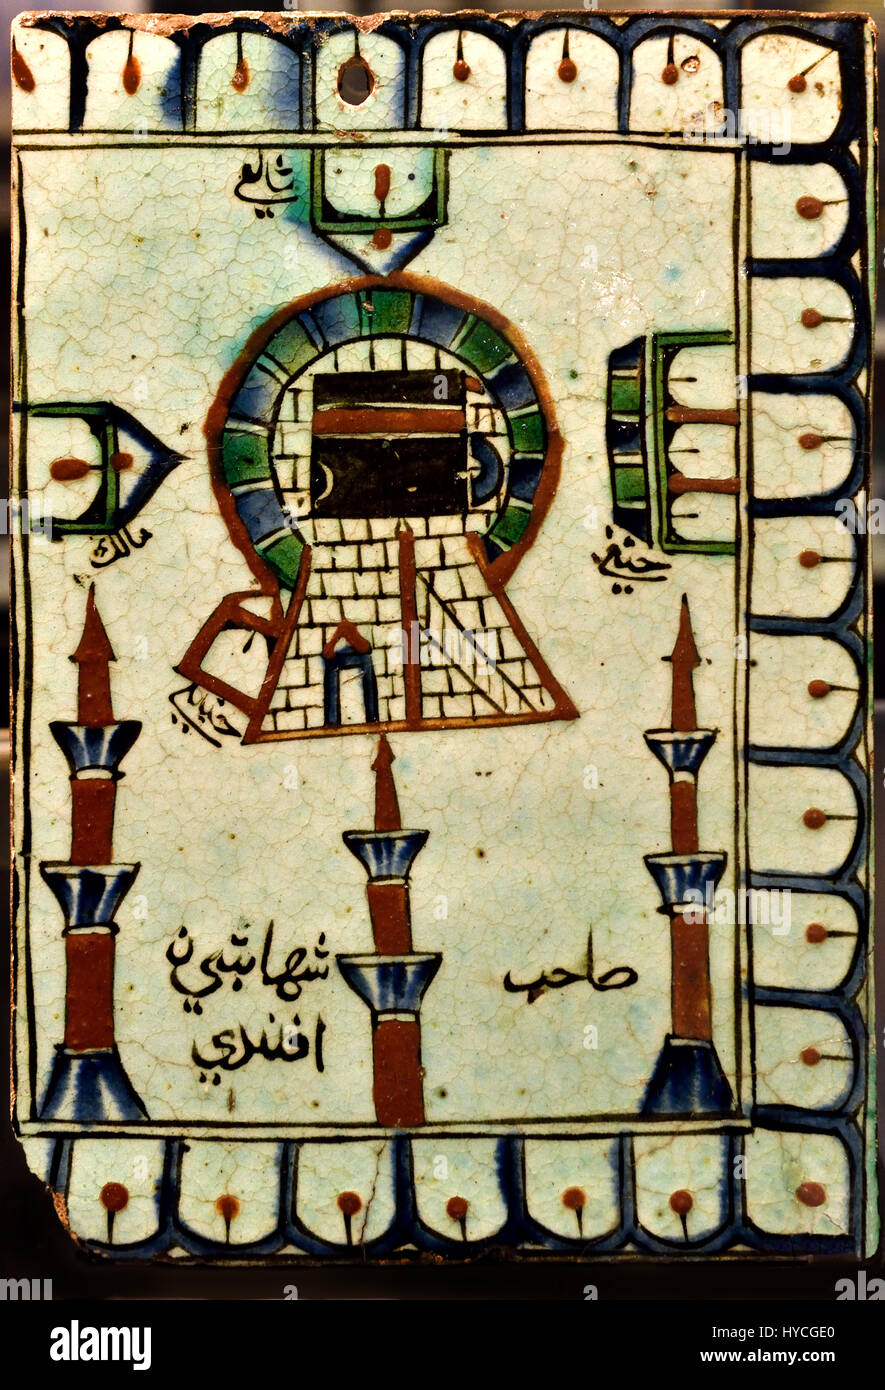 شافعي
مالك
حنفي
حنبلي
صاحب
افندي
alamy stock photo
HYCGE0
www.alamy.com